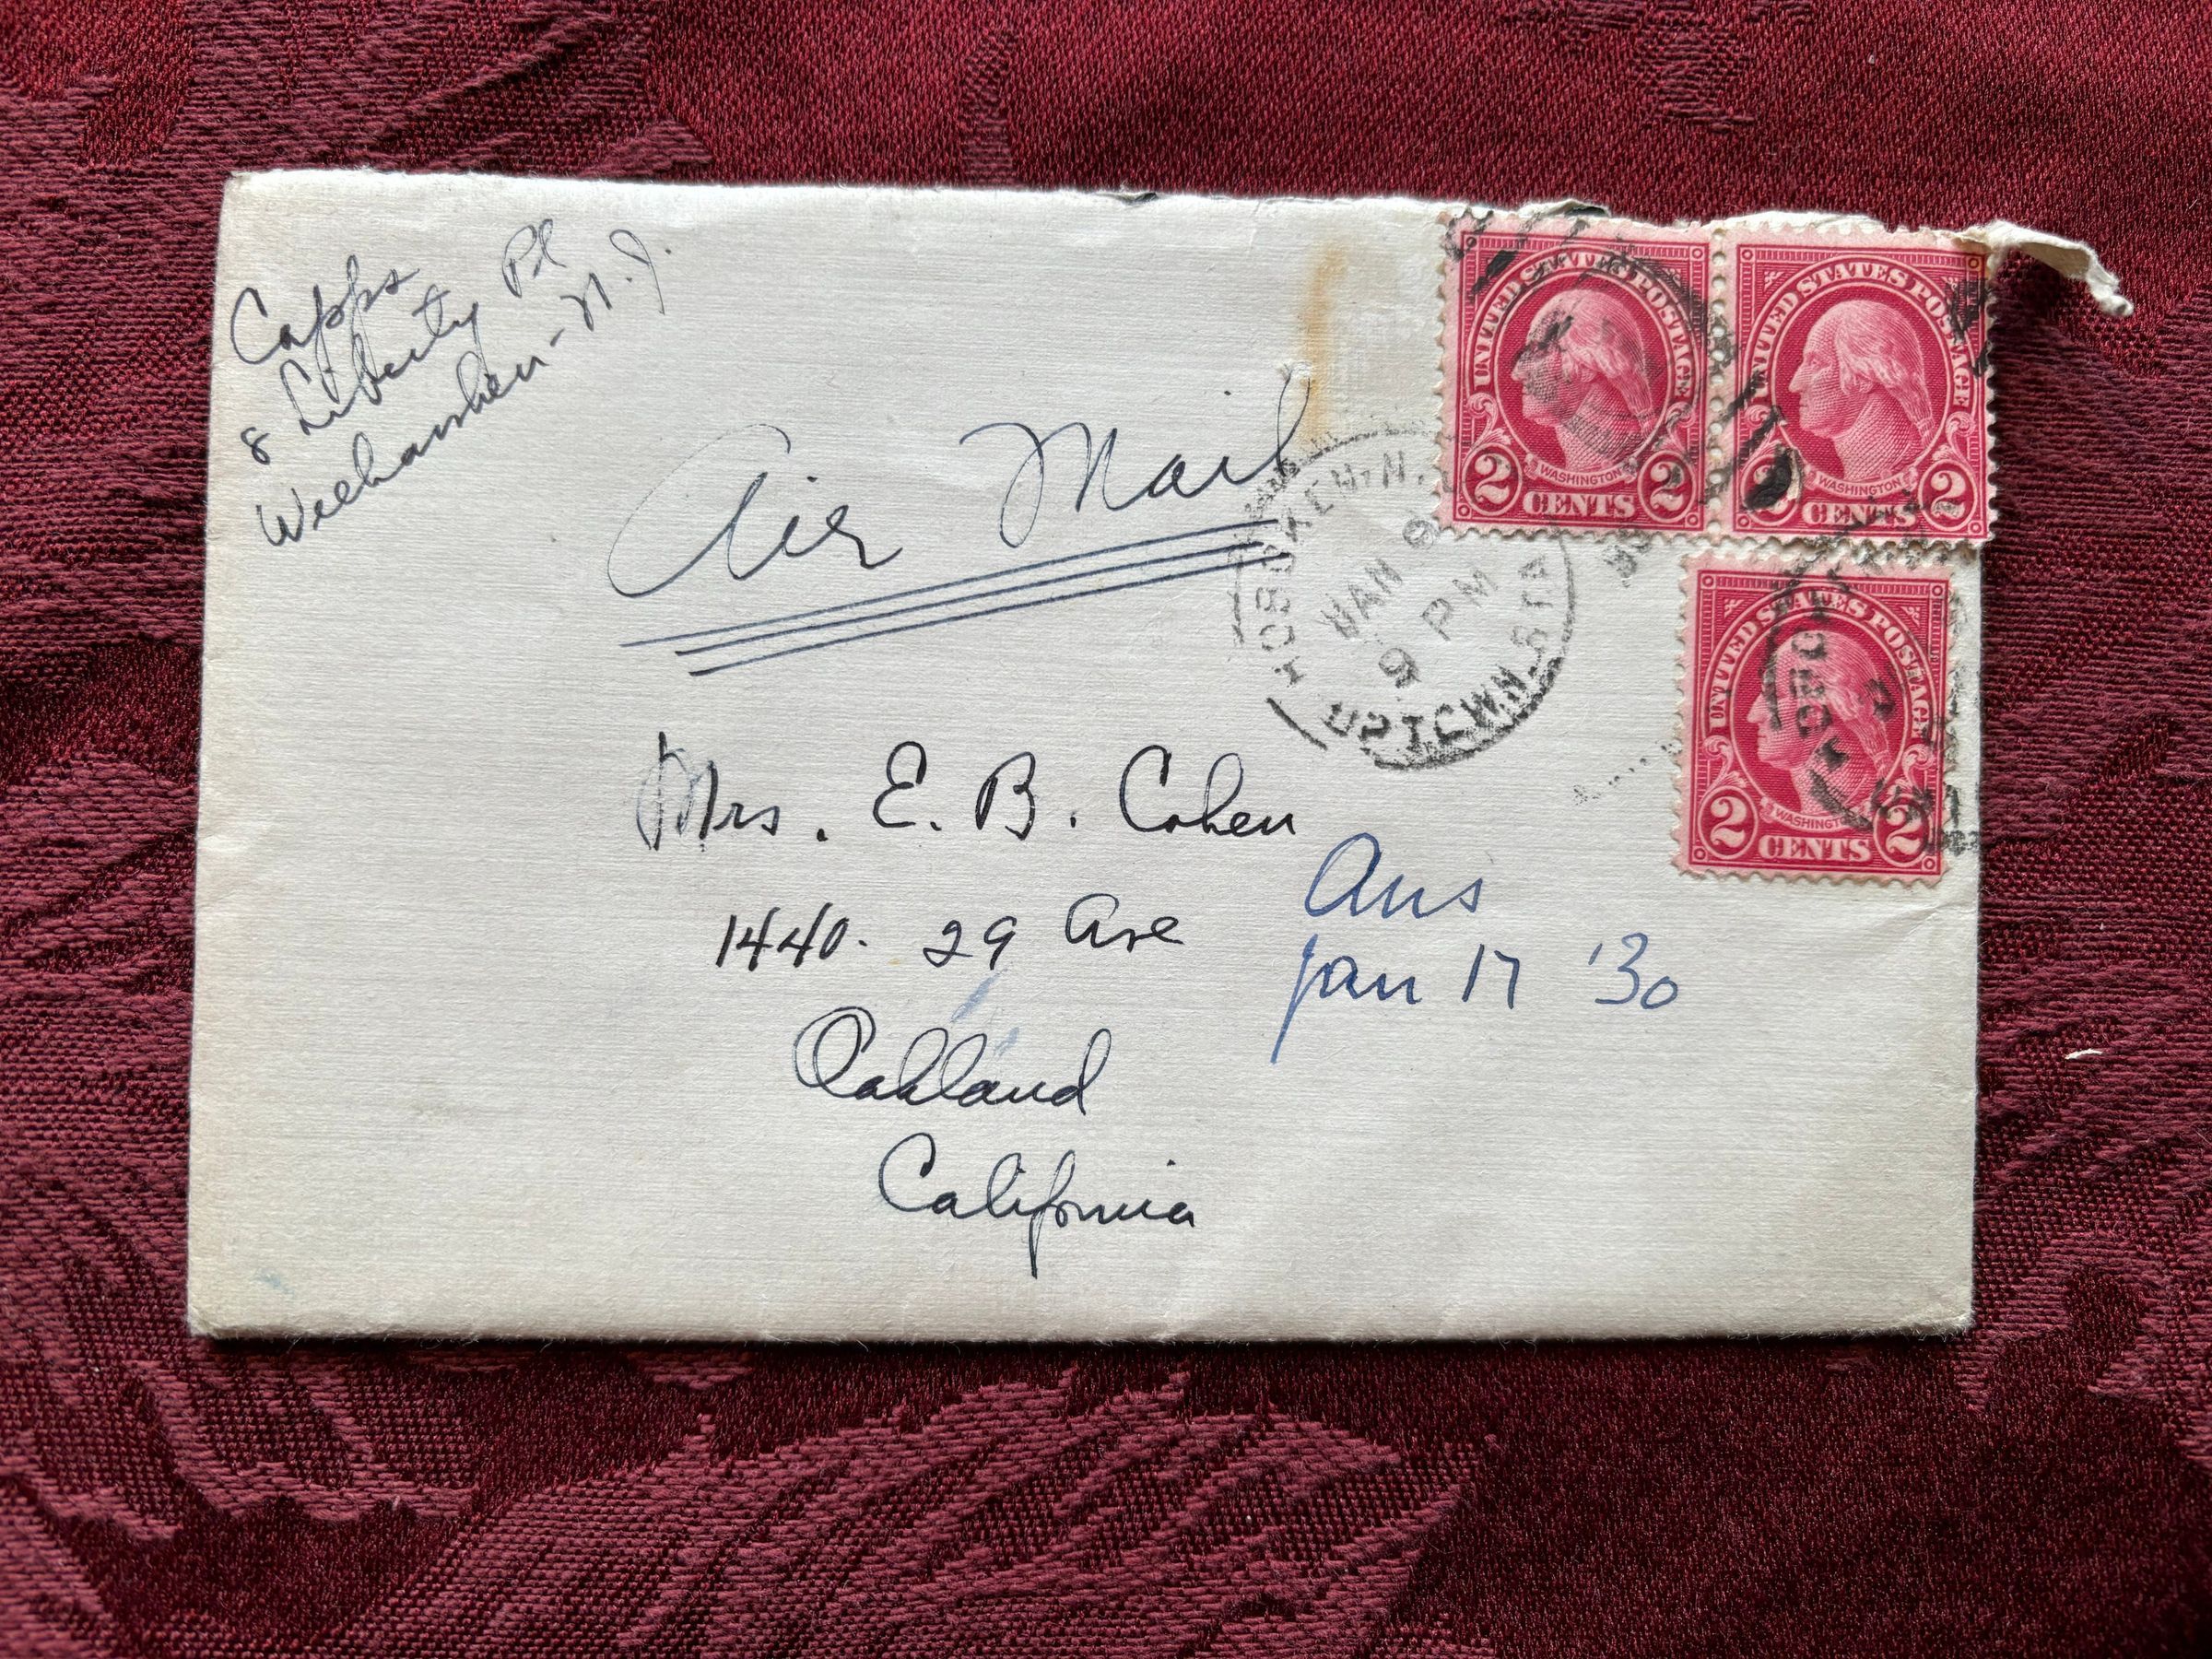 Capps
8 Liberty Pl
Weehawken - N.J.
Air Mail
HOBOKEN, N.J.
JAN 9
9 PM
UPTOWN STA
UNITED STATES POSTAGE
WASHINGTON
2 CENTS 2
UNITED STATES POSTAGE
WASHINGTON
2 CENTS 2
UNITED STATES POSTAGE
WASHINGTON
2 CENTS 2
Mrs. E. B. Cohen
1440. 29 Ave
Oakland
California
Ans
Jan 17 '30